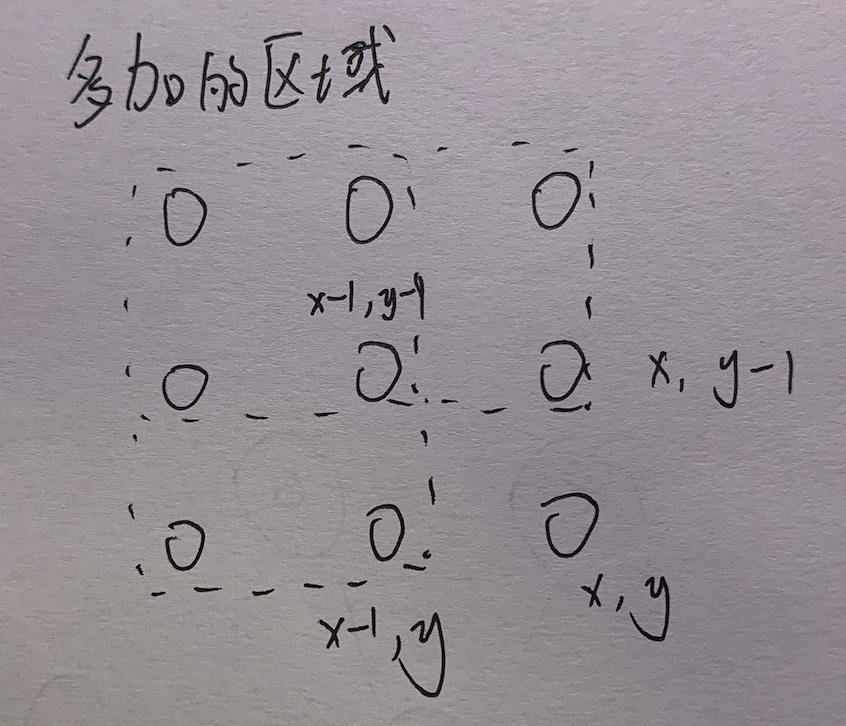 多加的区域
x-1,y-1
x, y-1
x,y
x-1,y